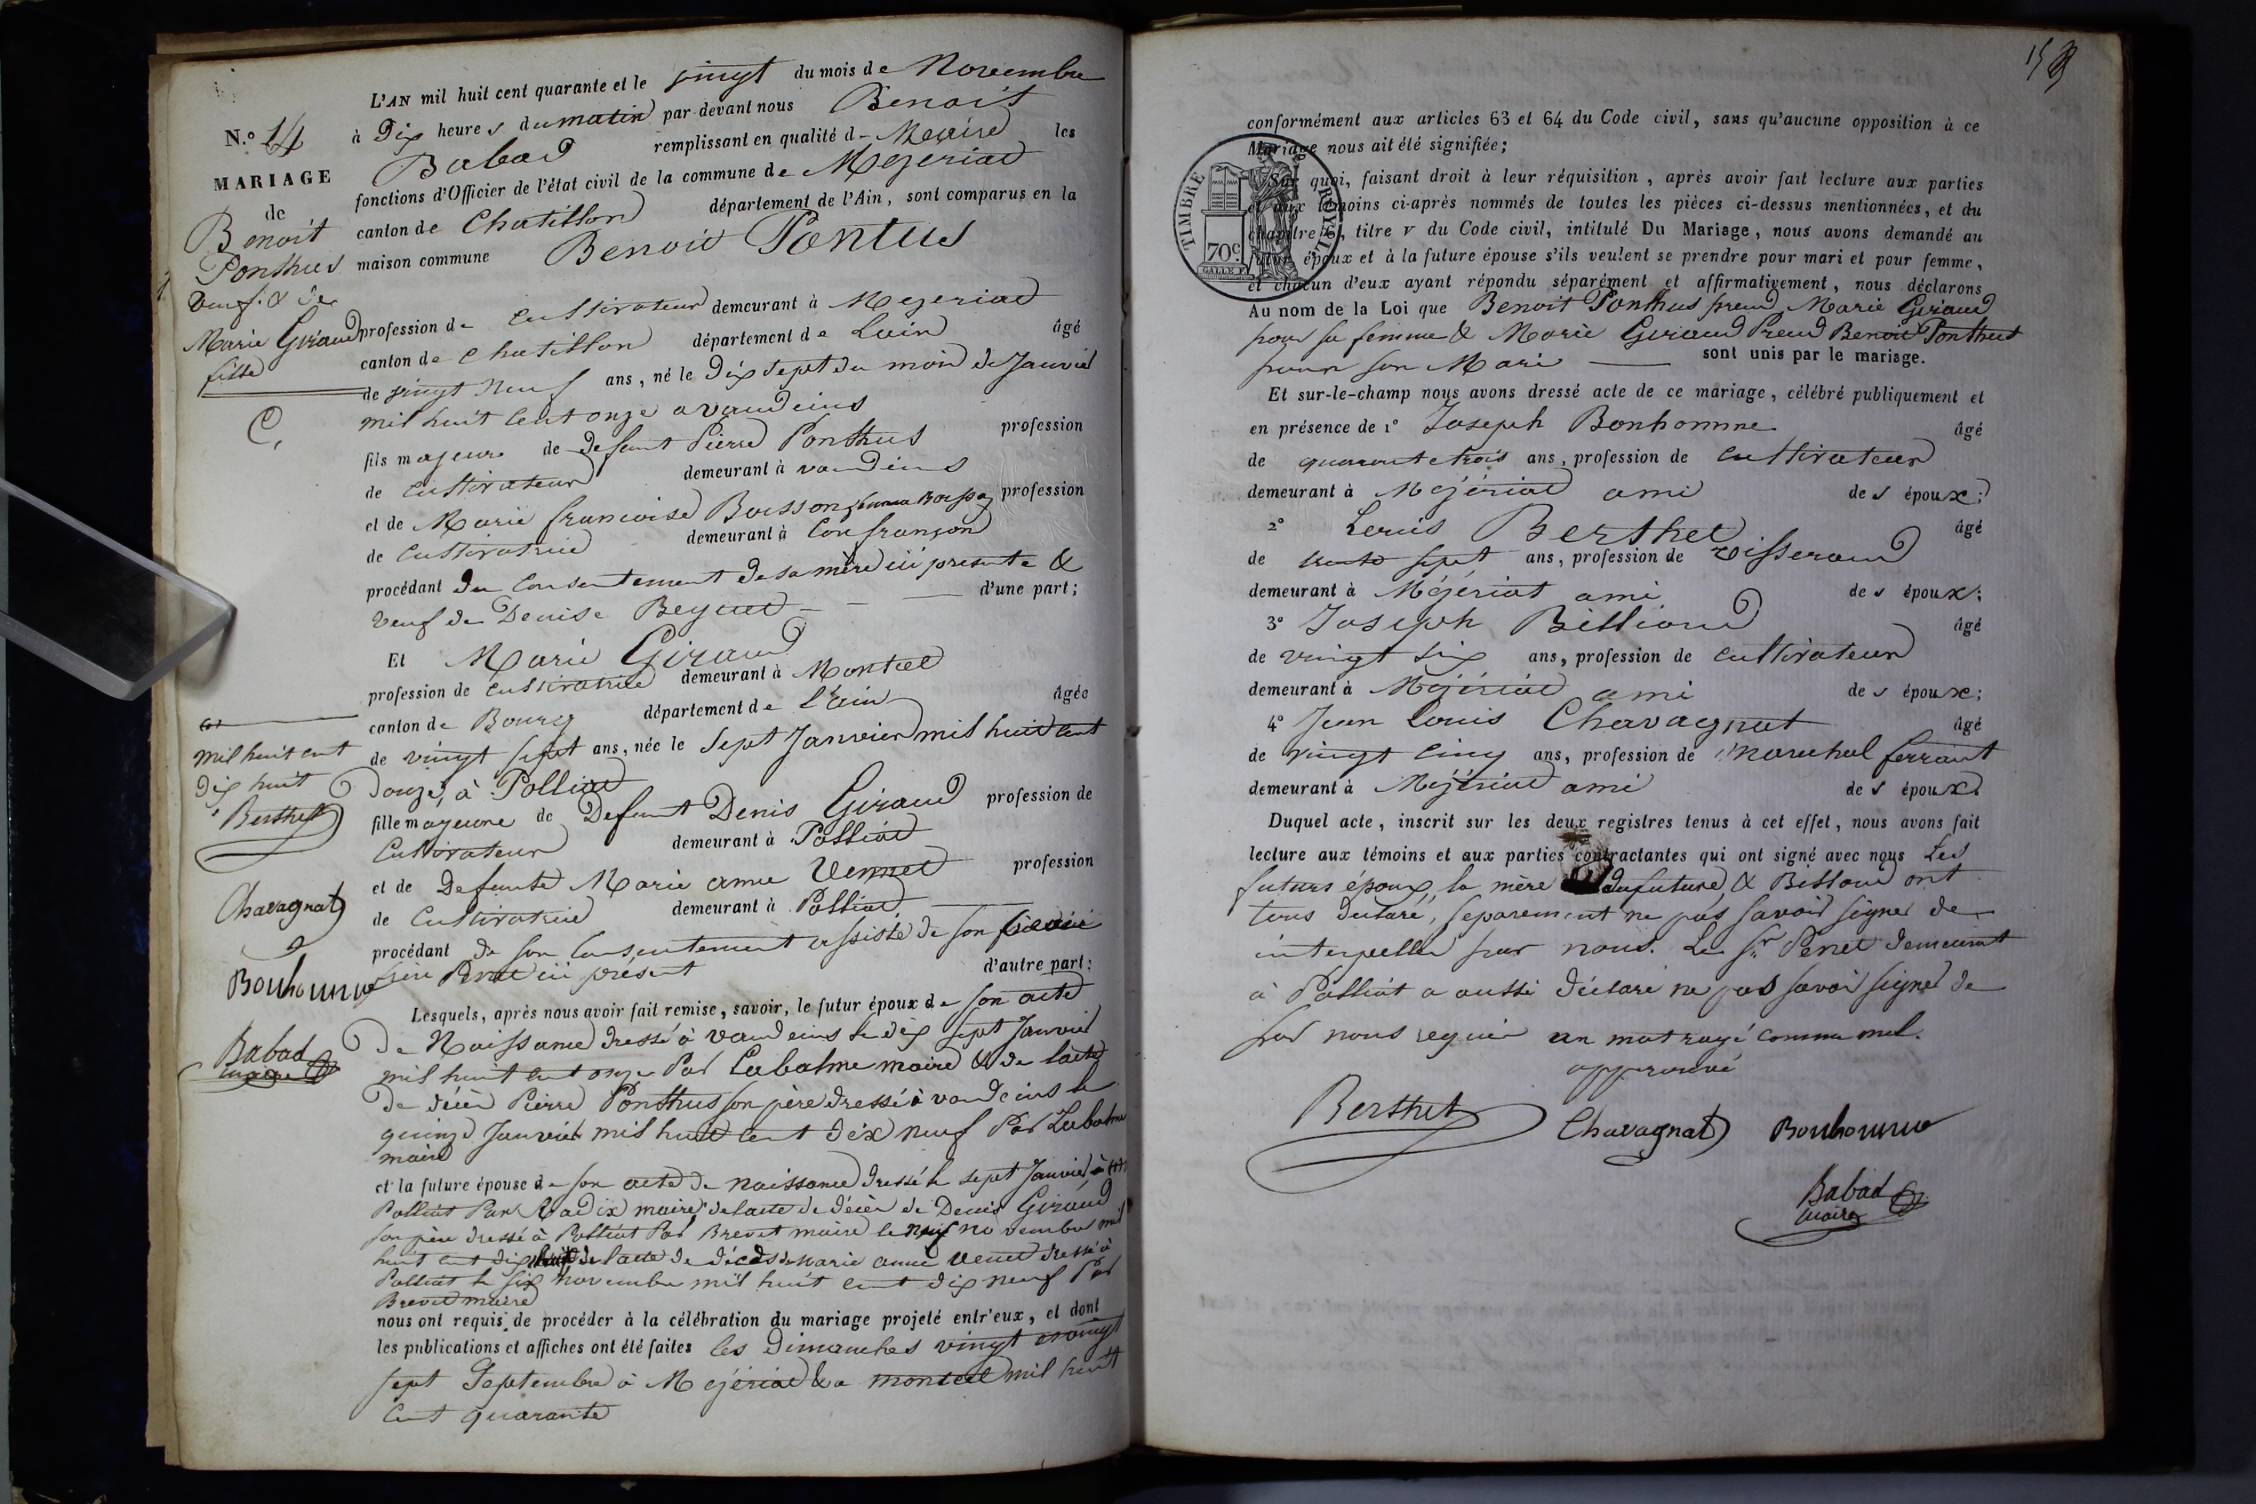 L'AN mil huit cent quarante et le vingt du mois de Novembre
N.o 14
à Dix heures du matin par-devant nous Benoit
Babad remplissant en qualité de Maire les
MARIAGE
fonctions d'Officier de l'état civil de la commune de Mezeriat
de
canton de Chatillon département de l'Ain, sont comparus en la
Benoit
Ponthus
maison commune Benoit Pontus
veuf & de
Marie Giraud
fille
C.
profession de Cultivateur demeurant à Mezeriat
canton de Chatillon département de Lain âgé
de vingt neuf ans, né le Dix sept du mois de Janvier
mil huit cent onze a vandeins
fils majeur de defunt Pierre Ponthus profession
de Cultivateur demeurant à vandeins
et de Marie francoise Buisson profession
de Cultivatrice demeurant à Confrançon
procédant du Consentement de sa mère ici presente &
veuf de Denise Beguet d'une part;
Et Marie Giraud
profession de Cultivatrice demeurant à Montcet
canton de Bourg département de l'Ain âgée
de vingt sept ans, née le Sept Janvier mil huit cent
mil huit cent
dix huit
Berthet
douze, à Polliat
fille majeure de Defunt Denis Giraud profession de
Cultivateur demeurant à Polliat
et de Defunte Marie anne Vennet profession
Chavagnat
de Cultivatrice demeurant à Polliat
procédant de son Consentement assisté de son
Perret ici présent d'autre part:
Bonhomme
Lesquels, après nous avoir fait remise, savoir, le futur époux de son acte
de Naissance dressé à vandeins le dix sept Janvier
Babad
maire
mil huit cent onze Par Labalme maire & de lacte
de décès Pierre Ponthus son père dressé à vandeins le
quinze Janvier mil huit cent dix neuf Par Labalme
maire
et la future épouse de son acte de naissance dressé le sept Janvier à
Polliat Par maire de lacte de décès de Denis Giraud
son père dressé à Polliat Par Brevet maire le neuf novembre mil
huit cent dix de lacte de décès de Marie anne Venet dressé à
Polliat le six novembre mil huit cent dix neuf Par
Brevet maire
nous ont requis de procéder à la célébration du mariage projeté entr'eux, et dont
les publications et affiches ont été faites les Dimanches vingt et vingt
sept Septembre à Mézériat & a montcet mil huit
Cent quarante
conformément aux articles 63 et 64 du Code civil, sans qu'aucune opposition à ce
Mariage nous ait été signifiée;
TIMBRE ROYAL
70c
Sur quoi, faisant droit à leur réquisition, après avoir fait lecture aux parties
et aux témoins ci-après nommés de toutes les pièces ci-dessus mentionnées, et du
chapitre , titre v du Code civil, intitulé Du Mariage, nous avons demandé au
futur époux et à la future épouse s'ils veulent se prendre pour mari et pour femme,
et chacun d'eux ayant répondu séparément et affirmativement, nous déclarons
Au nom de la Loi que Benoit Ponthus prend Marie Giraud
pour sa femme & Marie Giraud Prend Benoit Ponthus
pour son Mari sont unis par le mariage.
Et sur-le-champ nous avons dressé acte de ce mariage, célébré publiquement et
en présence de 1o Joseph Bonhomme âgé
de quarante trois ans, profession de Cultivateur
demeurant à Mézériat ami des époux;
2o Louis Berthet âgé
de trente sept ans, profession de Tisserand
demeurant à Mézériat ami des époux;
3o Joseph Billioud âgé
de vingt six ans, profession de Cultivateur
demeurant à Mézériat ami des époux;
4o Jean Louis Chavagnat âgé
de vingt cinq ans, profession de marechal ferrant
demeurant à Mézériat ami des époux.
Duquel acte, inscrit sur les deux registres tenus à cet effet, nous avons fait
lecture aux témoins et aux parties contractantes qui ont signé avec nous Les
futurs époux, la mère du future, & Billoud ont
tous declaré, separement ne pas savoir signer de
interpellé par nous. Le Sr Perret demeurant
à Polliat a aussi déclaré ne pas savoir signer de
par nous requis un mot rayé comme nul.
approuvé
Berthet
Chavagnat Bonhomme
Babad
maire